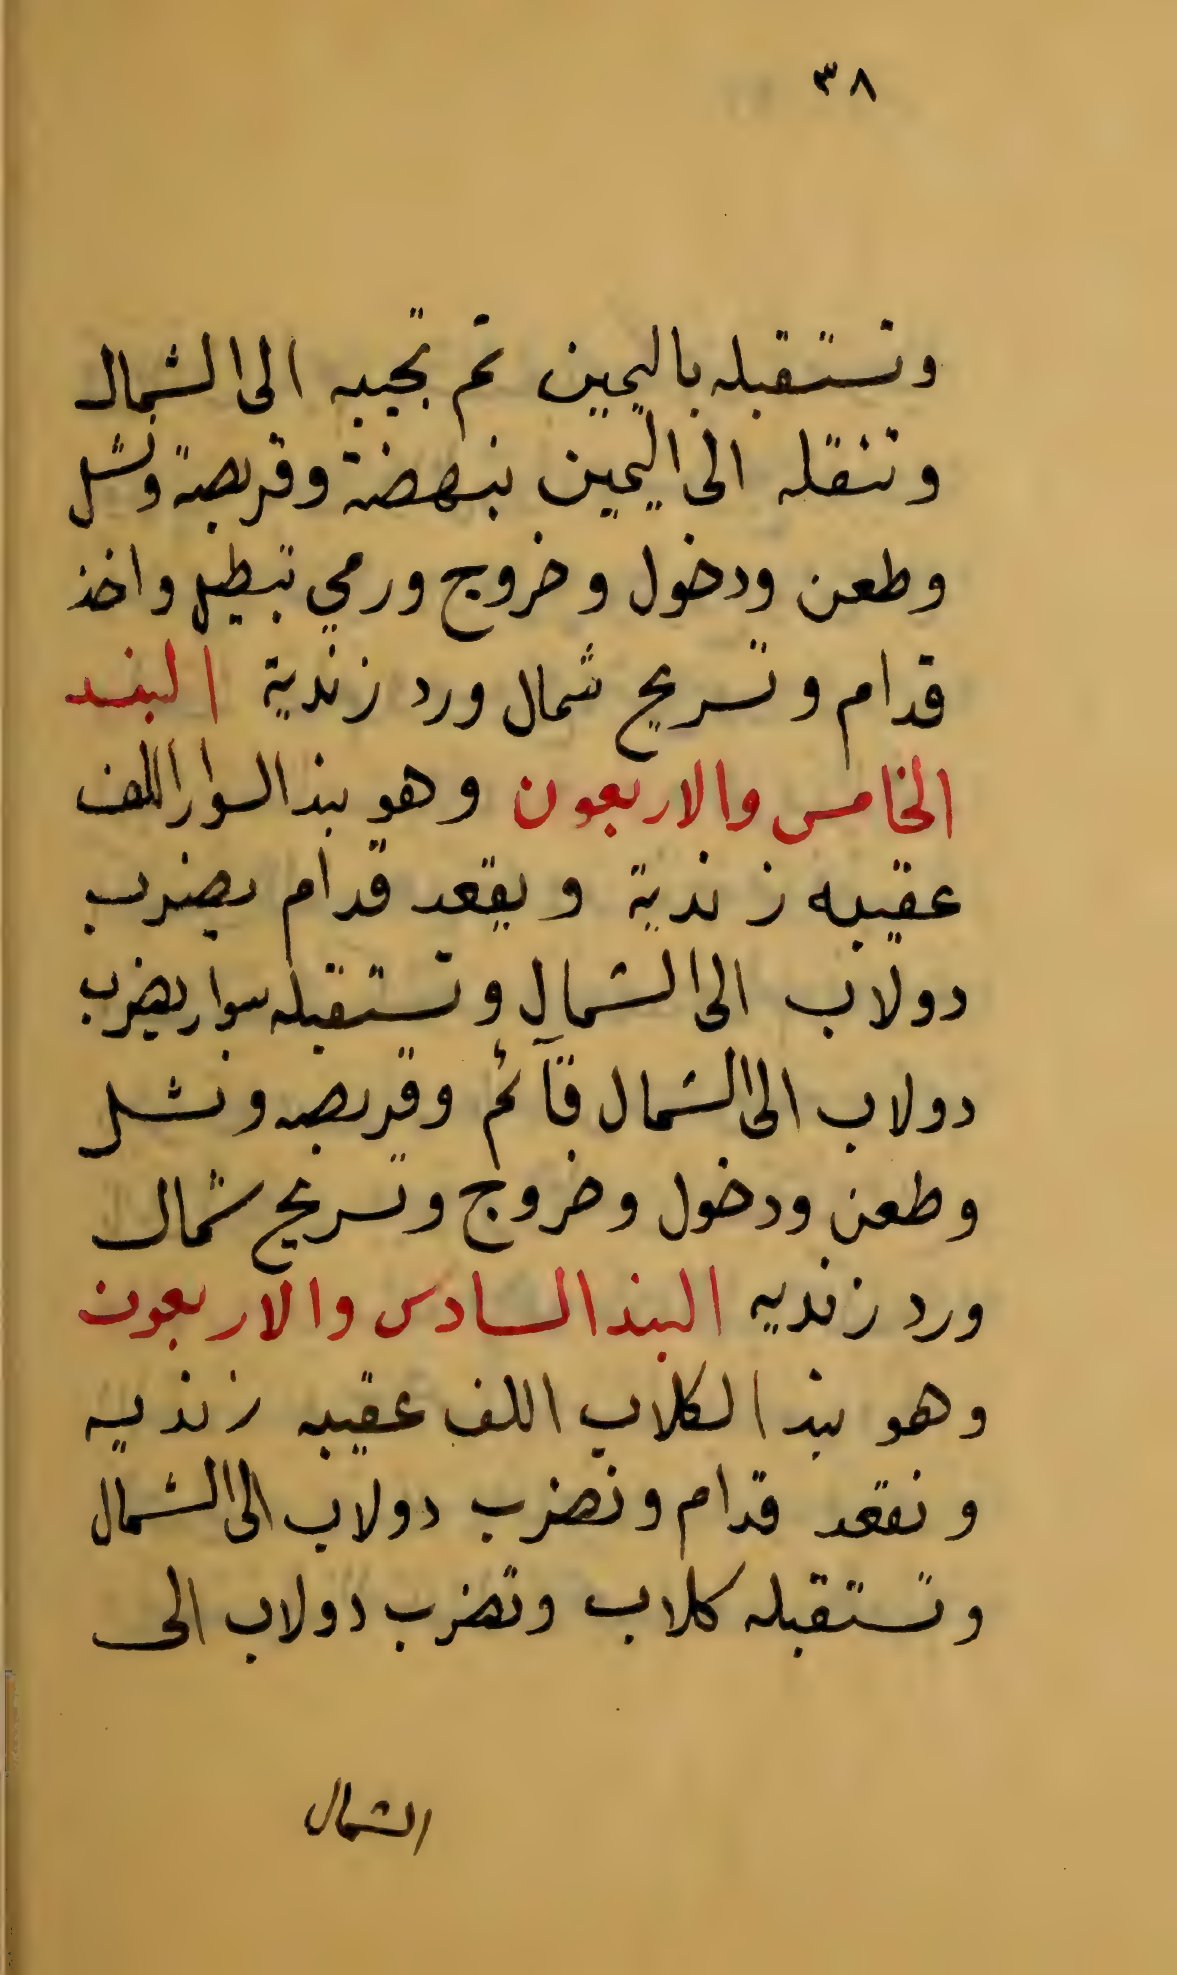 ٣٨
وتستقبله باليمين ثم تجيبه الى الشمال
وتنقله الى اليمين بنهضة وقربصة وتشل
وطعن ودخول وخروج ورمي تبطيل واخذ
قدام وتسريح شمال ورد زندية البند
الخامس والاربعون وهو بند السوار اللف
عقيبه زندية ويقعد قدام يضرب
دولاب الى الشمال وتستقبله سوار يضرب
دولاب الى الشمال قآئم وقربصه وتشل
وطعن ودخول وخروج وتسريح شمال
ورد زنديه البند السادس والاربعون
وهو بند الكلاب اللف عقيبه زنديه
وتقعد قدام وتضرب دولاب الى الشمال
وتستقبله كلاب وتضرب دولاب الى
الشمال